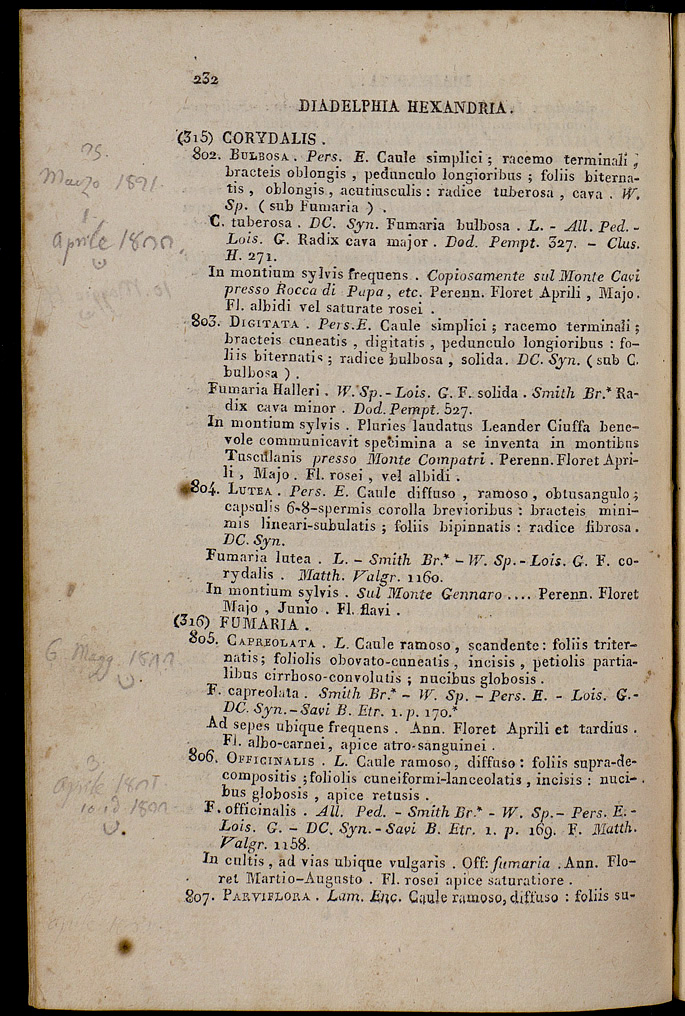 232
DIADELPHIA HEXANDRIA.
(315) CORYDALIS .
802. BULBOSA . Pers. E. Caule simplici ; racemo terminali ;
bracteis oblongis , pedunculo longioribus ; foliis biterna-
tis , oblongis , acutiusculis : radice tuberosa , cava . W.
Sp. ( sub Fumaria ) .
C. tuberosa . DC. Syn. Fumaria bulbosa . L. - All. Ped. -
Lois. G. Radix cava major . Dod. Pempt. 327. - Clus.
H. 271.
In montium sylvis frequens . Copiosamente sul Monte Cavi
presso Rocca di Papa, etc. Perenn. Floret Aprili , Majo.
Fl. albidi vel saturate rosei .
803. DIGITATA . Pers. E. Caule simplici ; racemo terminali ;
bracteis cuneatis , digitatis , pedunculo longioribus : fo-
liis biternatis ; radice bulbosa , solida. DC. Syn. ( sub C.
bulbosa ) .
Fumaria Halleri . W. Sp. - Lois. G. F. solida . Smith Br.* Ra-
dix cava minor . Dod. Pempt. 527.
In montium sylvis . Pluries laudatus Leander Ciuffa bene-
vole communicavit specimina a se inventa in montibus
Tusculanis presso Monte Compatri . Perenn. Floret Apri-
li , Majo . Fl. rosei , vel albidi .
804. LUTEA . Pers. E. Caule diffuso , ramoso , obtusangulo ;
capsulis 6-8-spermis corolla brevioribus : bracteis mini-
mis lineari-subulatis ; foliis bipinnatis : radice fibrosa .
DC. Syn.
Fumaria lutea . L. - Smith Br.* - W. Sp. - Lois. G. F. co-
rydalis . Matth. Valgr. 1160.
In montium sylvis . Sul Monte Gennaro .... Perenn. Floret
Majo , Junio . Fl. flavi .
(316) FUMARIA .
805. CAPREOLATA . L. Caule ramoso , scandente : foliis triter-
natis; foliolis obovato-cuneatis , incisis , petiolis partia-
libus cirrhoso-convolutis ; nucibus globosis .
F. capreolata . Smith Br.* - W. Sp. - Pers. E. - Lois. G.-
DC. Syn. - Savi B. Etr. 1. p. 170.*
Ad sepes ubique frequens . Ann. Floret Aprili et tardius .
Fl. albo-carnei, apice atro-sanguinei .
806. OFFICINALIS . L. Caule ramoso, diffuso : foliis supra-de-
compositis ; foliolis cuneiformi-lanceolatis , incisis : nuci-
bus globosis , apice retusis .
F. officinalis . All. Ped. - Smith Br.* - W. Sp. - Pers. E. -
Lois. G. - DC. Syn. - Savi B. Etr. 1. p. 169. F. Matth.
Valgr. 1158.
In cultis , ad vias ubique vulgaris . Off: fumaria . Ann. Flo-
ret Martio-Augusto . Fl. rosei apice saturatiore .
807. PARVIFLORA . Lam. Enc. Caule ramoso, diffuso : foliis su-
Marzo
Aprile
6. Magg.
3.
Aprile